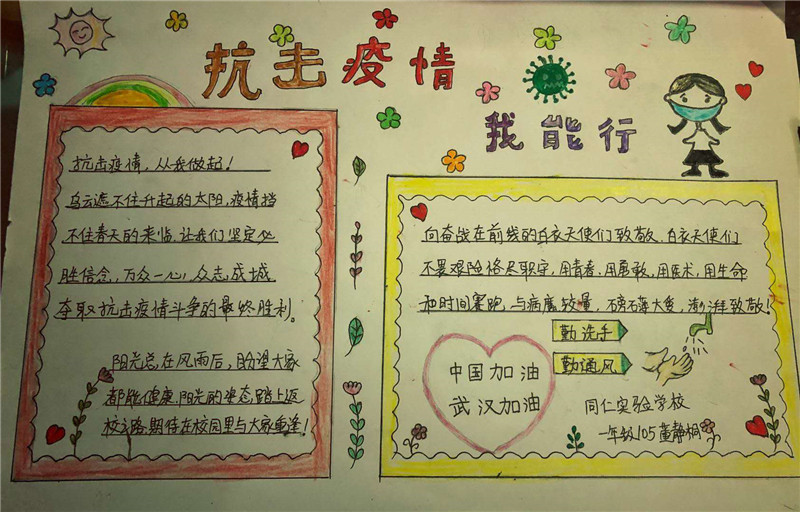 抗击疫情
我能行
抗击疫情，从我做起！
乌云遮不住升起的太阳，疫情挡
不住春天的来临。让我们坚定必
胜信念，万众一心，众志成城
夺取抗击疫情斗争的最终胜利。
阳光总在风雨后，盼望大家
都能健康、阳光的姿态踏上返
校之路，期待在校园里与大家重逢！
向奋战在前线的白衣天使们致敬，白衣天使们
不畏艰险恪尽职守，用青春、用勇敢、用医术，用生命
和时间赛跑，与病魔较量，磅礴大爱，澎湃致敬！
勤洗手
勤通风
中国加油
武汉加油
同仁实验学校
一年级105董静桐